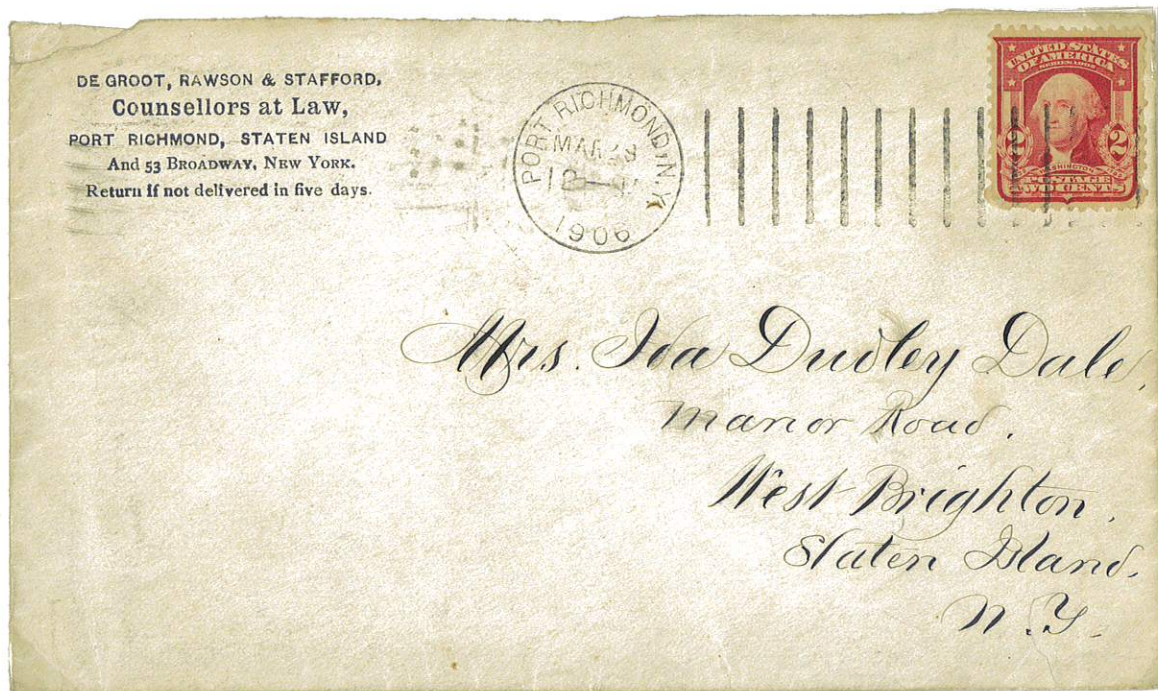 DE GROOT, RAWSON & STAFFORD,
Counsellors at Law,
PORT RICHMOND, STATEN ISLAND
And 53 BROADWAY, NEW YORK.
Return if not delivered in five days.
PORT RICHMOND, N.Y.
MAR
12
1906
UNITED STATES
OF AMERICA
SERIES 1902
2 2
WASHINGTON
POSTAGE
TWO CENTS
Mrs. Ida Dudley Dale,
Manor Road,
West Brighton,
Staten Island.
N.Y.